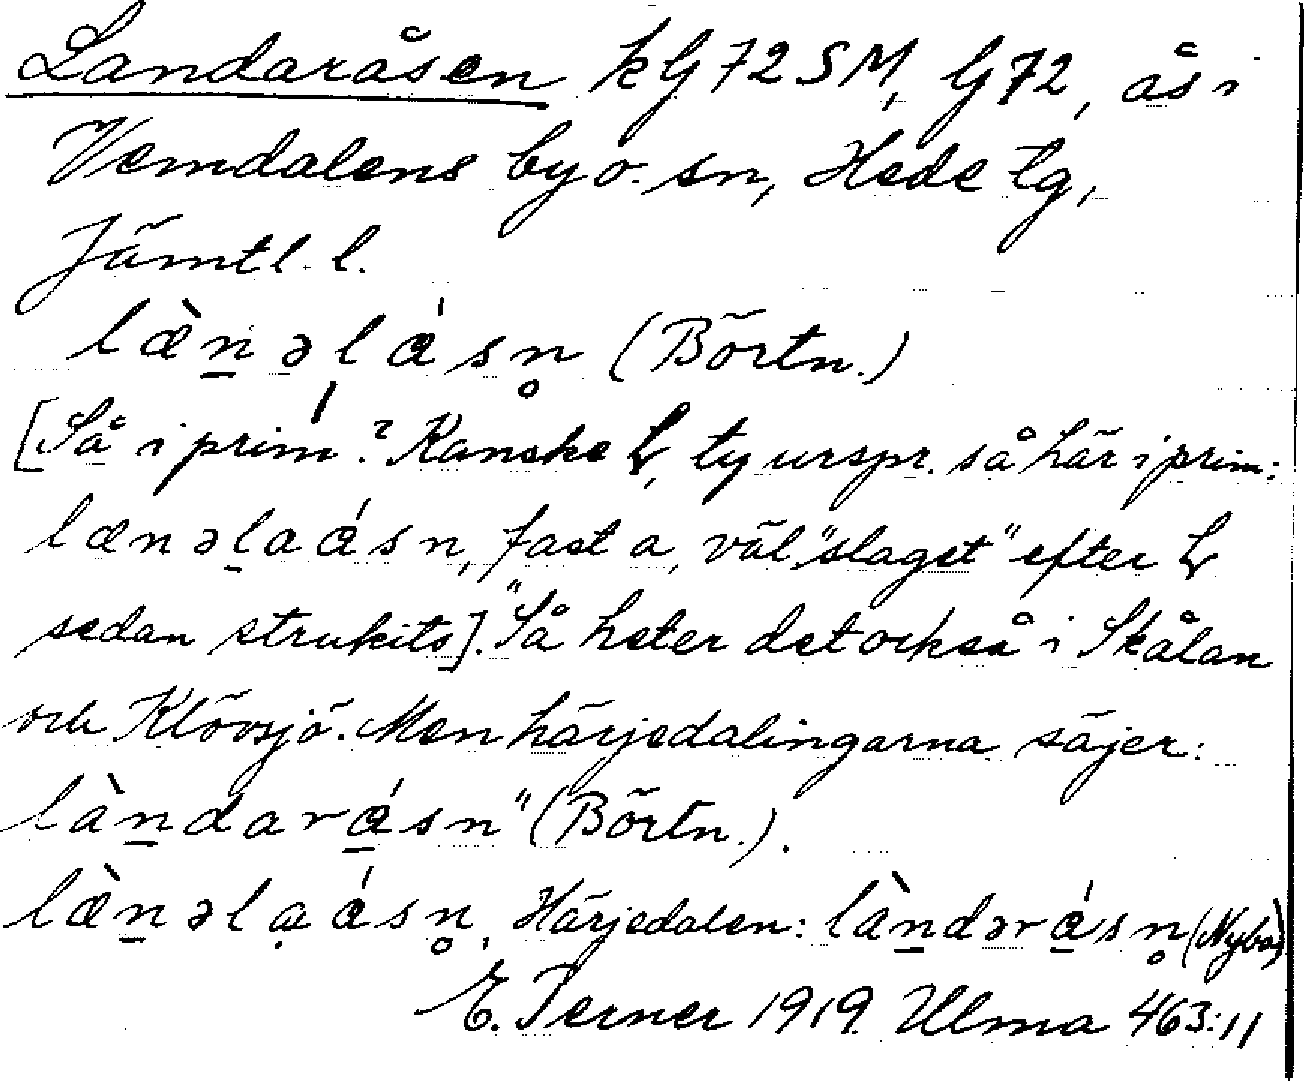 Landaråsen kG72SM, G72, ås i
Vemdalens by o. sn, Hede tg,
Jämtl. l.
læ̀n̲əlɑ́sn̥ (Börtn.)
[Så i prim? Kanske ty urspr. så här i prim:
lænəlaɑ́sn, fast a, väl "slaget" efter
sedan strukits]. "Så heter det också i Skålan
och Klövsjö. Men härjedalingarna säjer:
làn̲darɑ́sn" (Börtn.).
læ̀n̲əlạɑ́sn̥, Härjedalen: làn̲dərɑ́sn̥ (Nybo)
E. Terner 1919 Ulma 463:11